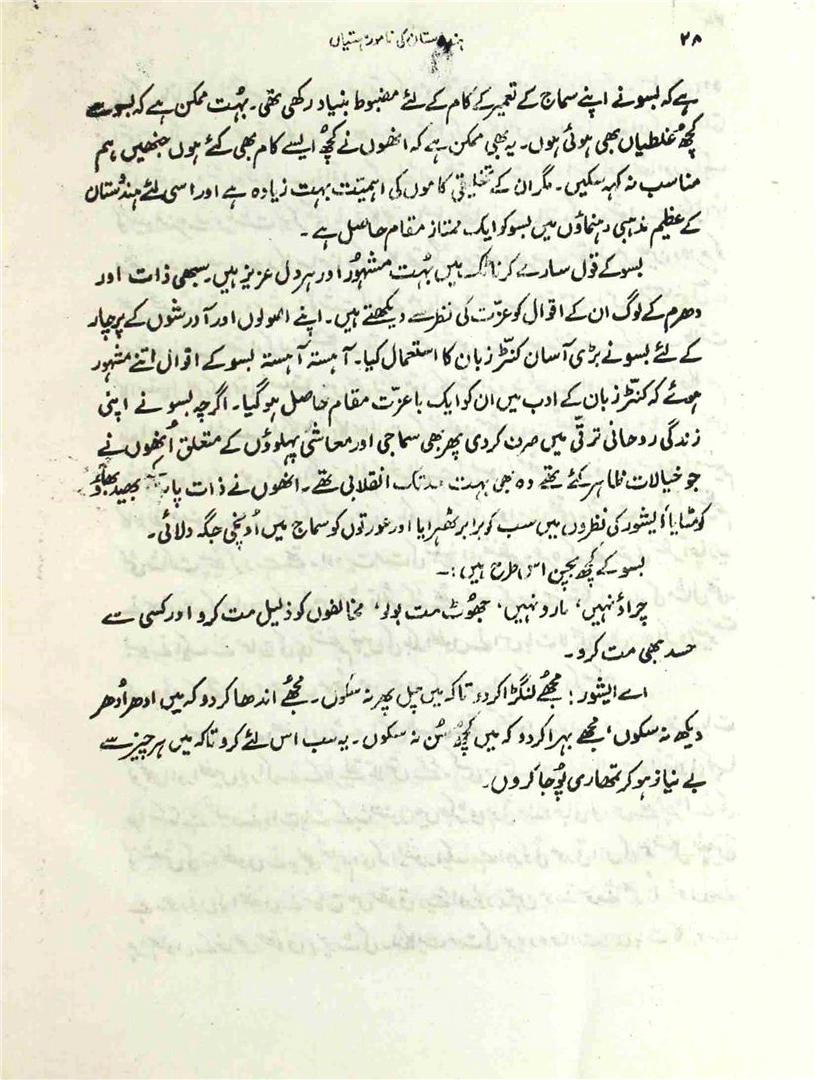 ۲۸
ہندوستان کی نامور ہستیاں
ہے کہ بسو نے اپنے سماج کے تعمیر کے کام کے لئے مضبوط بنیاد رکھی تھی۔ بہُت ممکن ہے کہ بسو سے
کچھ غلطیاں بھی ہوئی ہوں۔ یہ بھی ممکن ہے کہ انھوں نے کچھُ ایسے کام بھی کئے ہوں جنھیں ہم
مناسب نہ کہہ سکیں۔ مگر ان کے تخلیقی کاموں کی اہمیّت بہت زیادہ ہے اور اسی لئے ہندُستان
کے عظیم مذہبی رہنماؤں میں بسو کو ایک ممتاز مقام حاصل ہے۔
بسو کے قول سارے کرناٹک میں بہُت مشہوُر اور ہر دل عزیز ہیں۔ سبھی ذات اور
دھرم کے لوگ ان کے اقوال کو عزّت کی نظر سے دیکھتے ہیں۔ اپنے اصولوں اور آدرشوں کے پرچار
کے لئے بسو نے بڑی آسان کنّڑ زبان کا استعمال کیا۔ آہستہ آہستہ بسو کے اقوال اتنے مشہور
ہوئے کہ کنّڑ زبان کے ادب میں ان کو ایک با عزّت مقام حاصل ہو گیا۔ اگرچہ بسو نے اپنی
زندگی روحانی ترقّی میں صرف کر دی پھر بھی سماجی اور معاشی پہلوؤں کے متعلق اُنھوں نے
جو خیالات ظاہر کئے تھے وہ بھی بہت حد تک انقلابی تھے۔ انھوں نے ذات پات بھید بھاؤ
کو مٹایا اَیشور کی نظروں میں سب کو برابر ٹھہرایا اور عورتوں کو سماج میں اُونچی جگہ دلائی۔
بسو کے کچُھ بچن اس طرح ہیں:۔
چراؤ نہیں، مارو نہیں، جھوُٹ مت بولو، مخالفوں کو ذلیل مت کرو اور کسی سے
حسد بھی مت کرو۔
اے ایشور! مجھُے لنگڑا کردو تاکہ میں چل پھر نہ سکوں۔ مجھُے اندھا کر دو کہ میں ادھر اُدھر
دیکھ نہ سکوں، مجھے بہرا کر دو کہ میں کچھُ سُن نہ سکوں۔ یہ سب اس لئے کرو تاکہ میں ہر چیز سے
بے نیاز ہو کر تمھاری پوُجا کروں۔